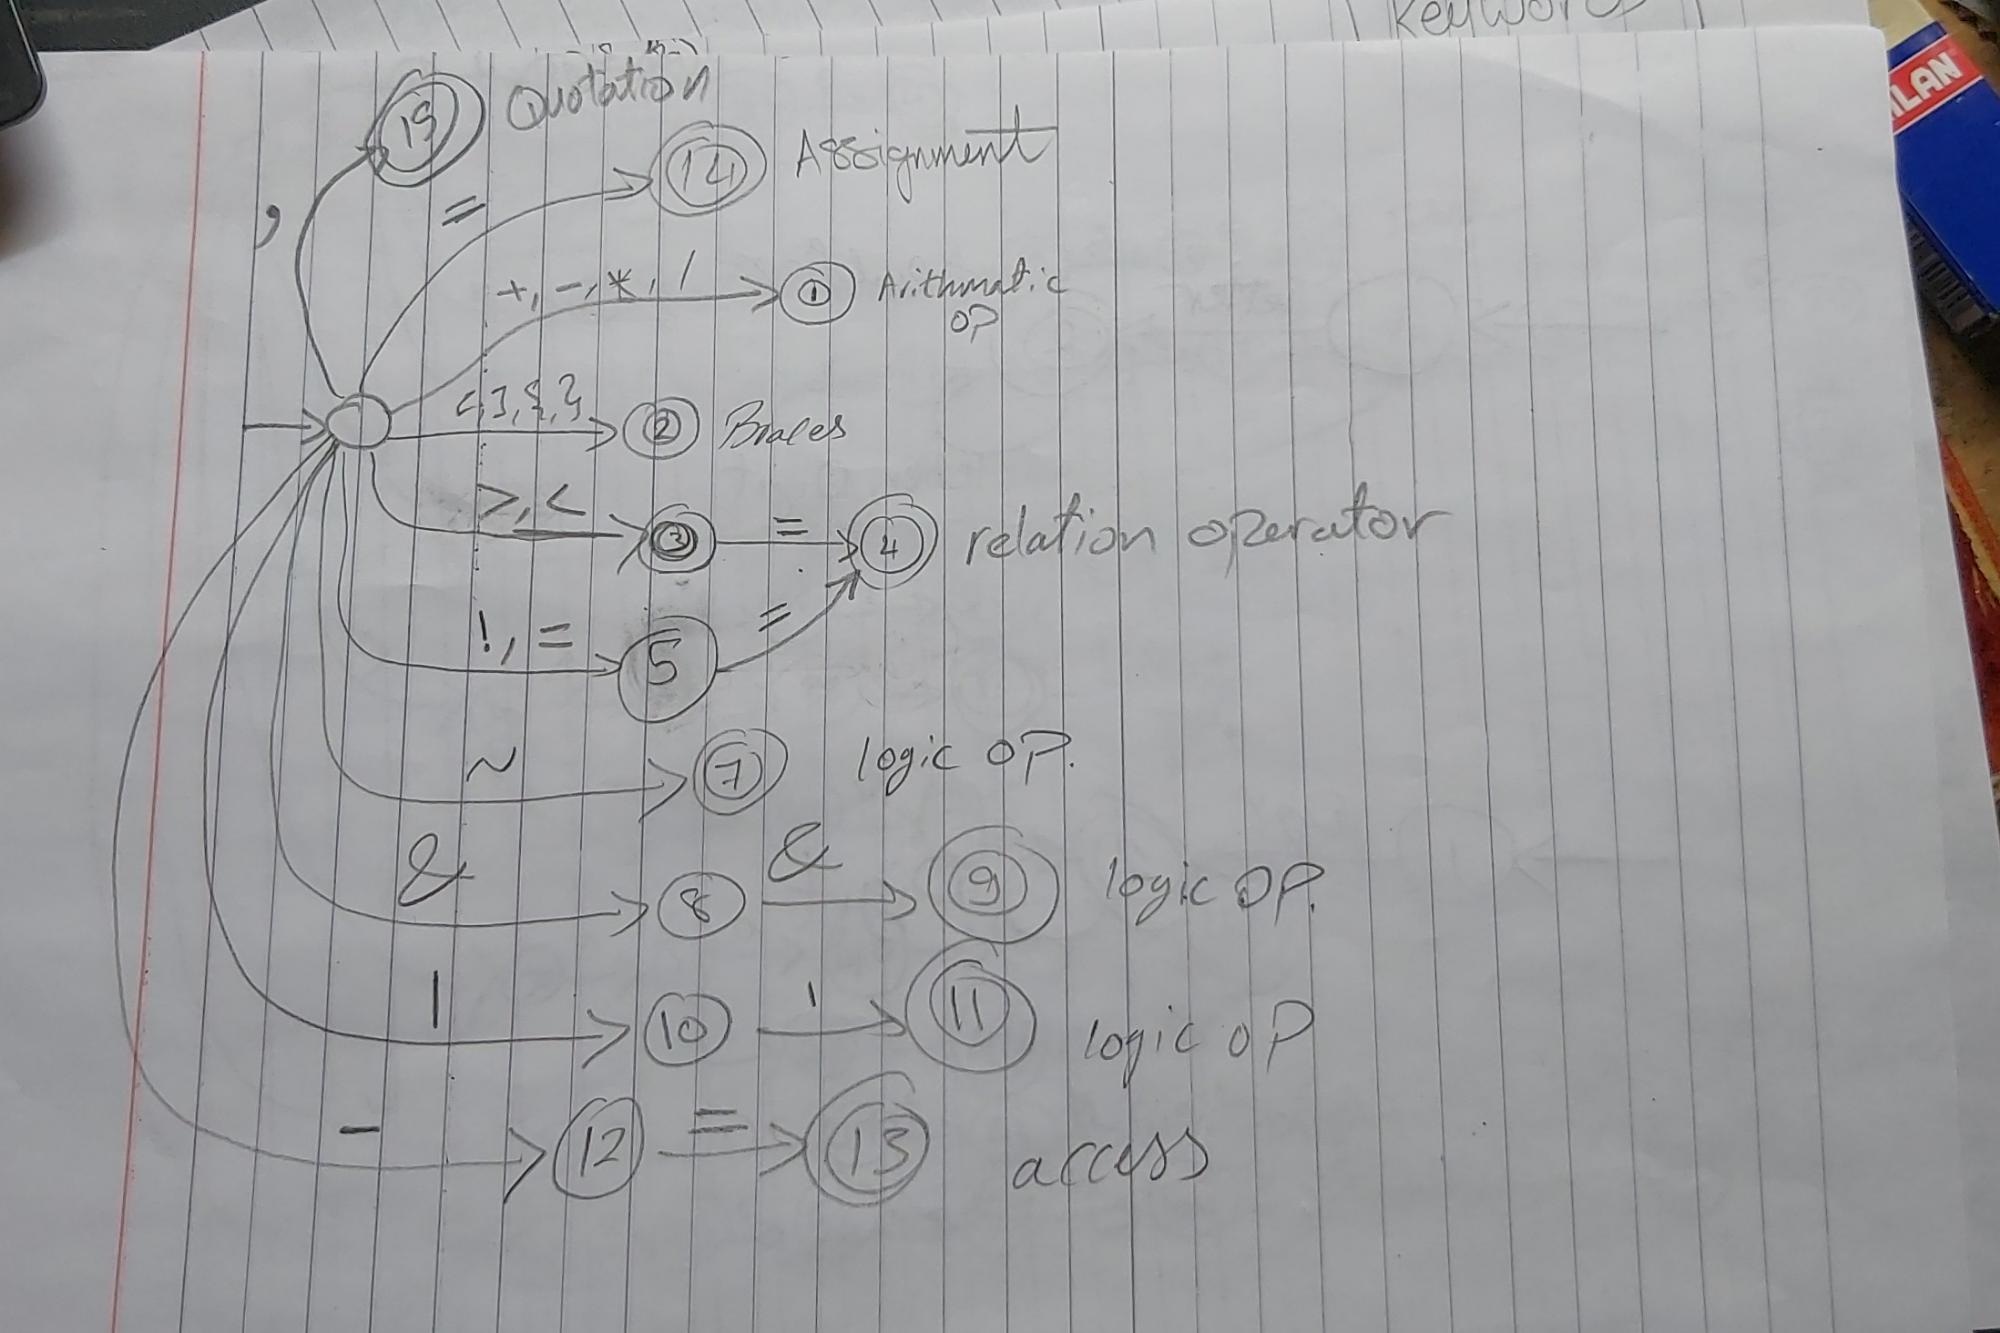 Keywords
LAN
15 Quotation
,
= 14 Assignment
+, -, *, / 1 Arithmatic
OP
2 Braces
>, < 3 = 4 relation operator
!, = 5 =
~ 7 logic OP.
& 8 & 9 logic OP.
| 10 | 11 logic OP
- 12 = 13 access